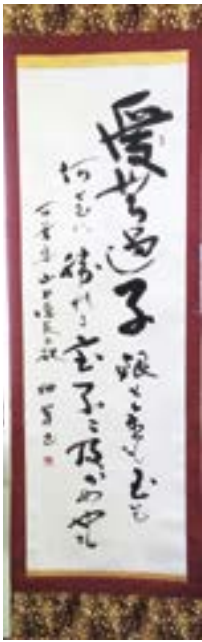 愛無過子 銀も金も玉も
何せむに 勝れる宝 子に及かめやも
万葉集 山上憶良の歌